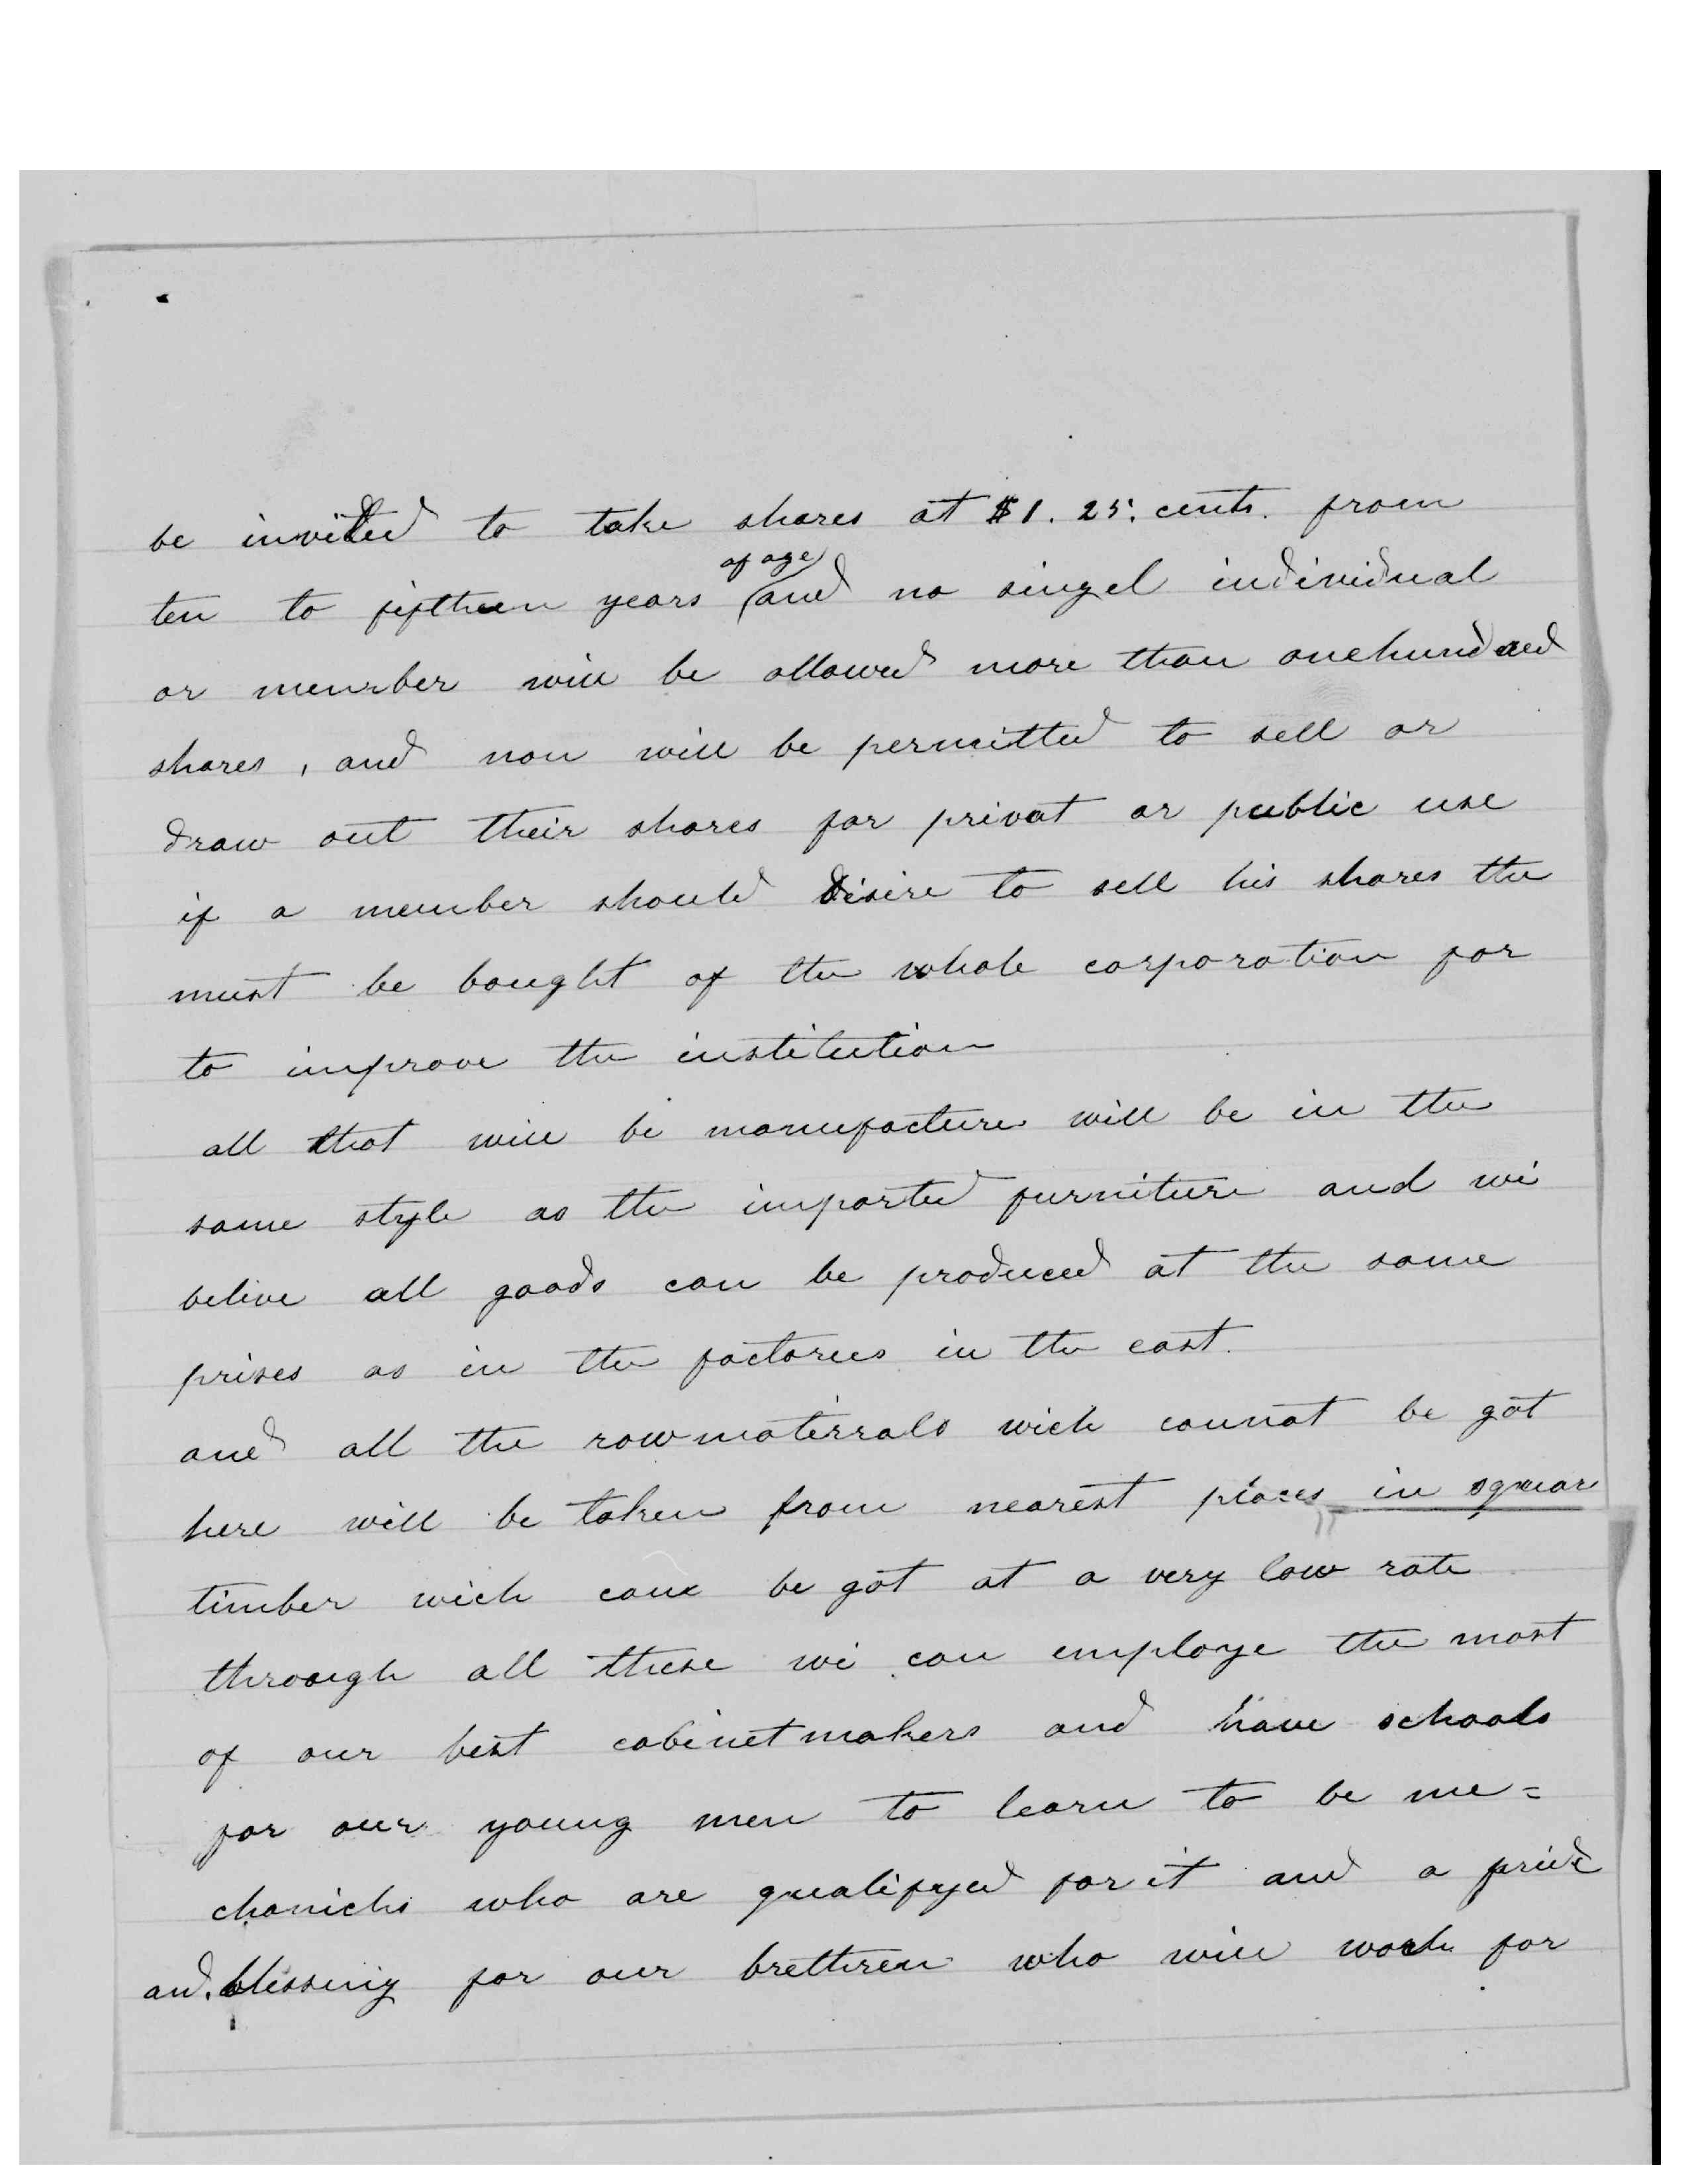 be invited to take shares at $1. 25. cents. from
of age
ten to fiftheen years and no singel individual
or member will be allowed more than onehundred
shares, and non will be permitted to sell or
draw out their shares for privat or public use
if a member should disire to sell his shares the
must be bought of the whole corporation for
to improve the institution
all that will be manufacture will be in the
same style as the imported furniture and wi
belive all goods can be produced at the same
prises as in the factories in the east.
and all the rowmaterrals wich cannot be got
here will be taken from nearest places in squar
timber wich can be got at a very low rate
through all these wi can employe the most
of our best cabinetmakers and have schools
for our young men to learn to be me=
chanichs who are qualifyed for it and a pride
and blessing for our brethren who will work for